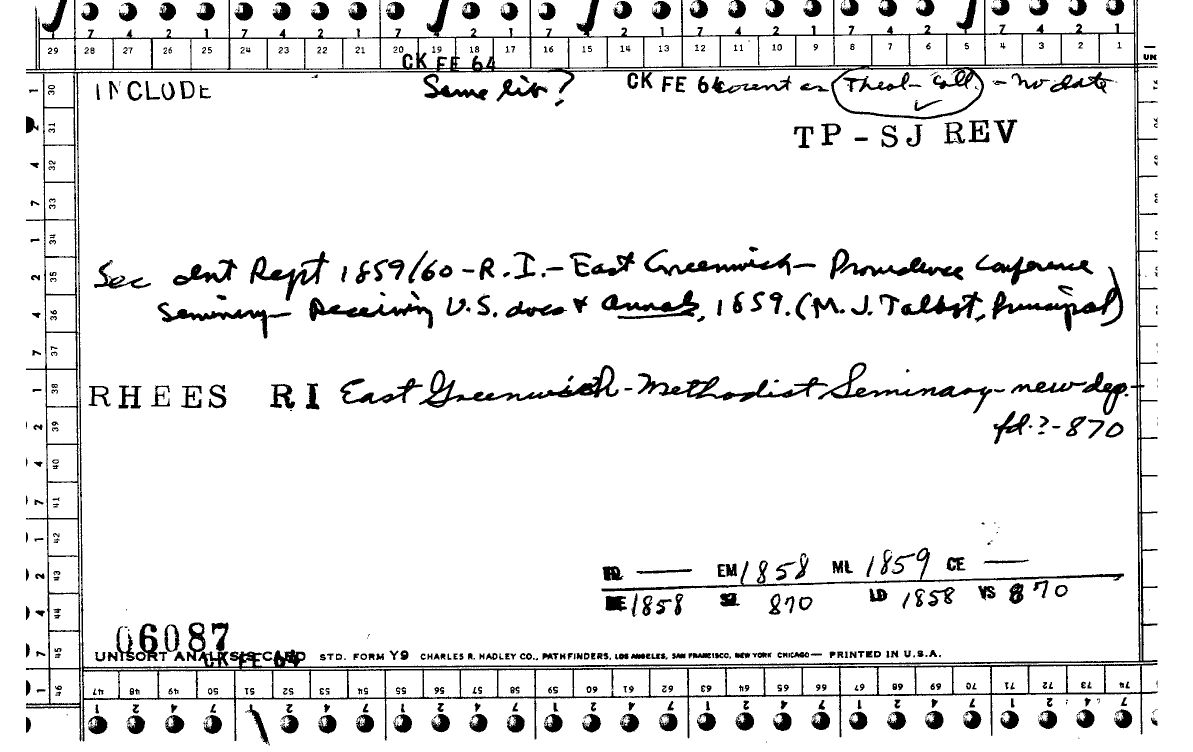 7 4 2 1 7 4 2 1 7 4 2 1 7 4 2 1 7 4 2 1 7 4 2 1 7 4 2 1
29 28 27 26 25 24 23 22 21 20 19 18 17 16 15 14 13 12 11 10 9 8 7 6 5 4 3 2 1
CK FE 64
INCLUDE Same lib? CK FE 64 count as Theol. Coll. - no date
TP - SJ REV
Sec Int Rept 1859/60 - R.I. - East Greenwich - Providence Conference
Seminary - Receiving U.S. docs & Annals, 1859. (M. J. Talbot, Principal)
RHEES RI East Greenwich - Methodist Seminary - new dep. -
fd. ? - 870
— EM 1858 ML 1859 CE —
1858 870 LD 1858 VS 870
06087
UNISORT ANALYSIS CARD STD. FORM Y9 CHARLES R. HADLEY CO., PATHFINDERS, LOS ANGELES, SAN FRANCISCO, NEW YORK CHICAGO — PRINTED IN U.S.A.
CK FE 64
30 31 32 33 34 35 36 37 38 39 40 41 42 43 44 45 46
47 48 49 50 51 52 53 54 55 56 57 58 59 60 61 62 63 64 65 66 67 68 69 70 71 72 73 74